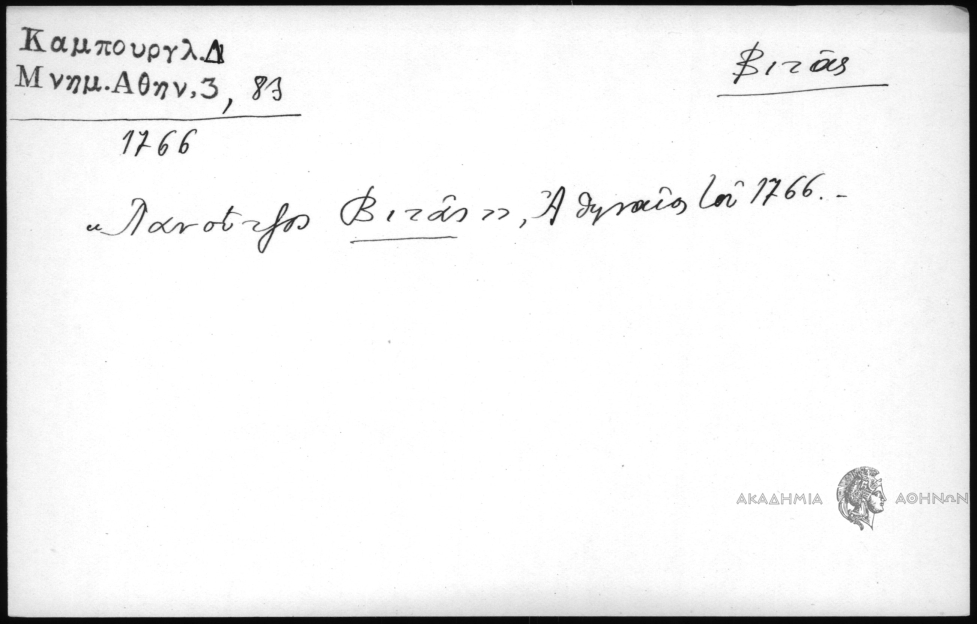 Καμπουργλ.Δ
Μνημ.Αθην.3, 83
1766
Βιτᾶς
« Πανοῦτζος Βιτᾶς », Ἀθηναῖος τοῦ 1766. -
ΑΚΑΔΗΜΙΑ ΑΘΗΝΩΝ